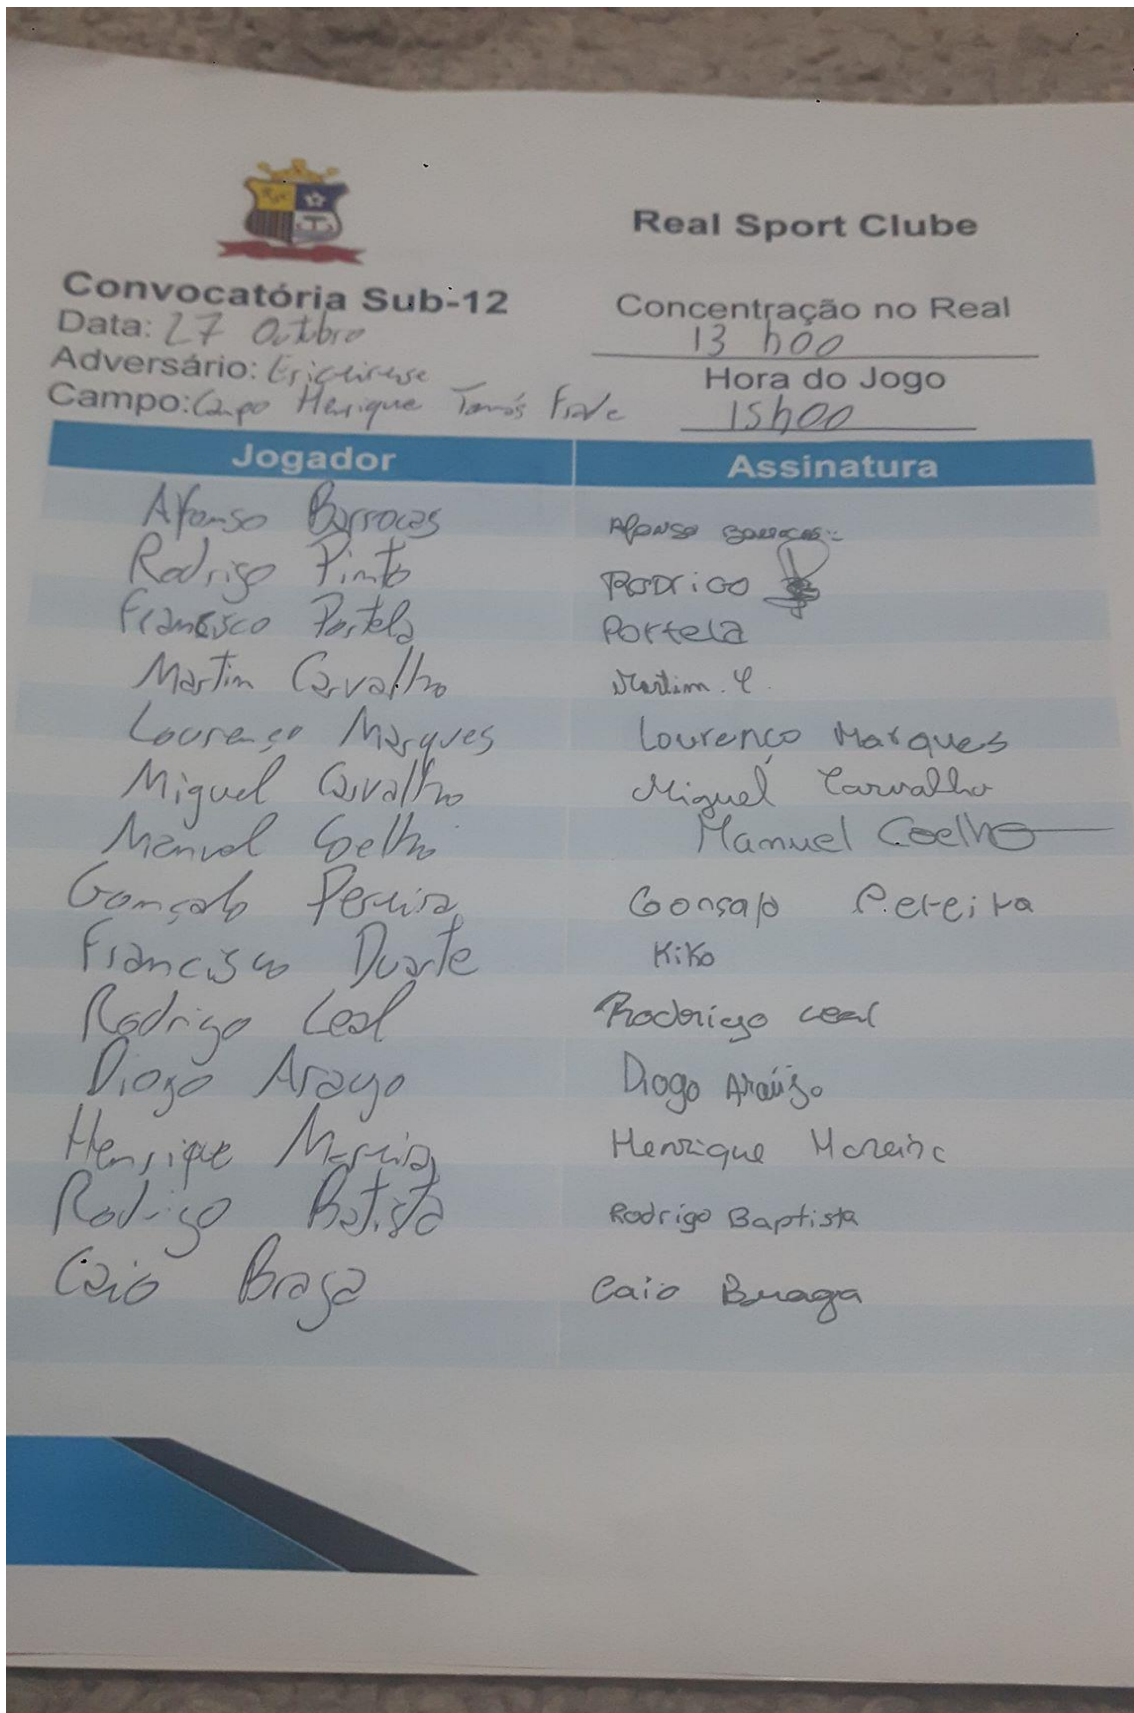 Real Sport Clube
Convocatória Sub-12
Concentração no Real
Data: 27 Outubro
13 h00
Adversário: Ericeirense
Hora do Jogo
Campo: Campo Henrique Tomás
15h00
Jogador Assinatura
Afonso Barrocas Afonso Barrocas
Rodrigo Pinto Rodrigo
Francisco Portela Portela
Martim Carvalho Martim. C.
Lourenço Marques Lourenço Marques
Miguel Carvalho Miguel Carvalho
Manuel Coelho Manuel Coelho
Gonçalo Pereira Gonçalo Pereira
Francisco Duarte Kiko
Rodrigo Leal Rodrigo Leal
Diogo Araujo Diogo Araújo
Henrique Moreira Henrique Moreira
Rodrigo Batista Rodrigo Baptista
Caio Braga Caio Braga